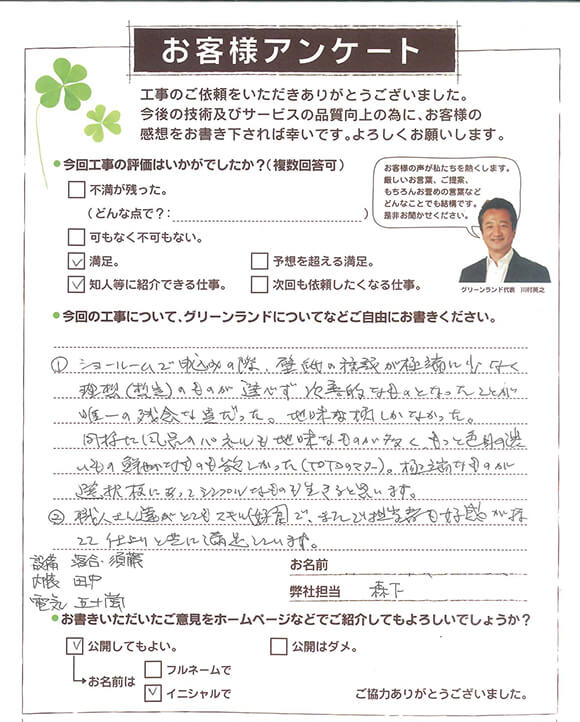 お客様アンケート
工事のご依頼をいただきありがとうございました。
今後の技術及びサービスの品質向上の為に、お客様の
感想をお書き下されば幸いです。よろしくお願いします。
●今回工事の評価はいかがでしたか？（複数回答可）
不満が残った。
（どんな点で？： ）
可もなく不可もない。
満足。
予想を超える満足。
知人等に紹介できる仕事。
次回も依頼したくなる仕事。
お客様の声が私たちを熱くします。
厳しいお言葉、ご提案、
もちろんお誉めの言葉など
どんなことでも結構です。
是非お聞かせください。
グリーンランド代表 川村英之
●今回の工事について、グリーンランドについてなどご自由にお書きください。
① ショールームで申込みの際、壁紙の種類が極端に少なく
理想(想定)のものが選べず 次善的なものとなったことが
唯一の残念な点だった。地味な柄しかなかった。
同様に風呂のパネルも地味なものが多く もっと色身の濃
いもの 鮮やかなものも欲しかった(TOTOのマター)。極端なものが
選択枝にあってシンプルなものも生きると思います。
② 職人さん達がとてもスキル(好印で、また担当者も好感が持
てて 仕上りと共に満足しています。
設備 落合・須藤
内装 田中
電気 五十嵐
お名前
弊社担当 森下
●お書きいただいたご意見をホームページなどでご紹介してもよろしいでしょうか？
公開してもよい。
公開はダメ。
お名前は
フルネームで
イニシャルで
ご協力ありがとうございました。